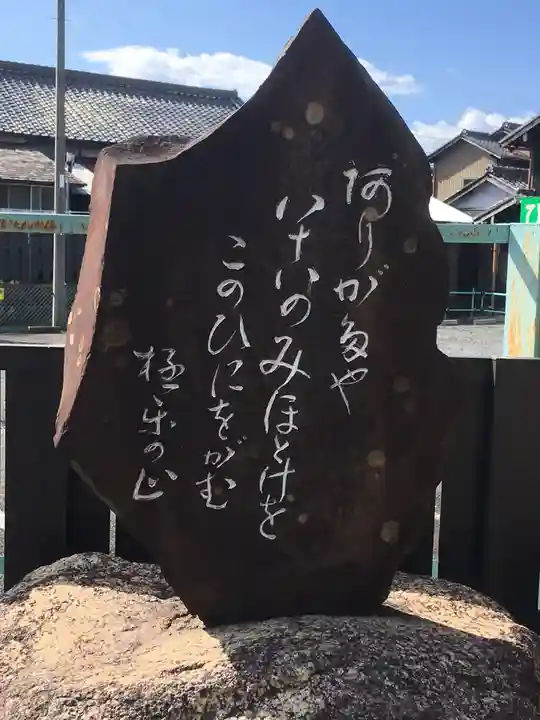 阿りが多や
いせいのみほとけを
このひにをがむ
極楽の山
7